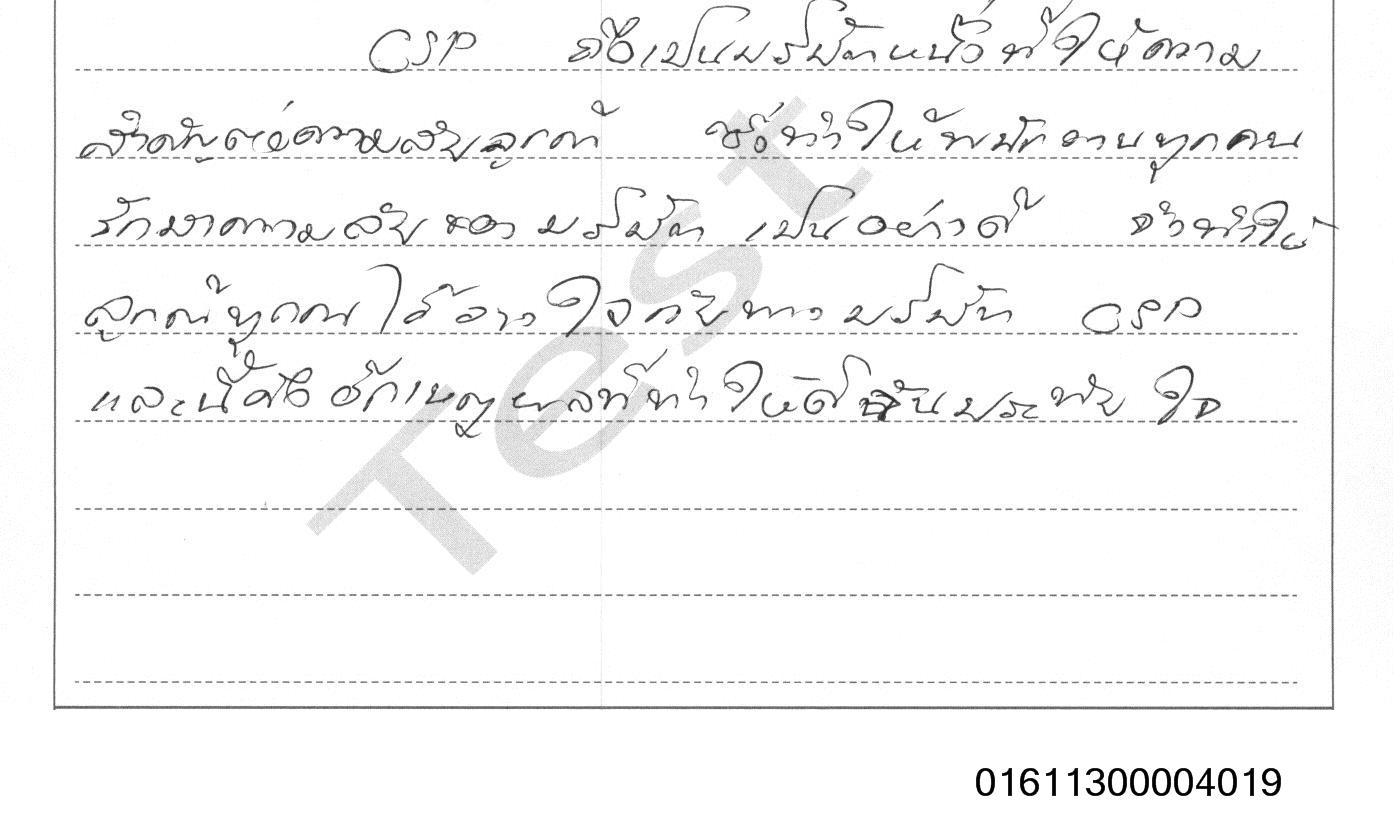 CSP ถือเป็นบริษัทหนึ่งที่ให้ความ
สำคัญต่อความลับลูกค้า ซึ่งทำให้พนักงานทุกคน
รักษาความลับของบริษัทเป็นอย่างดี จึงทำให้
ลูกค้าทุกคนไว้วางใจกับทางบริษัท CSP
และนี้คืออีกเหตุผลที่ทำให้ดิฉันประทับใจ
Test
01611300004019